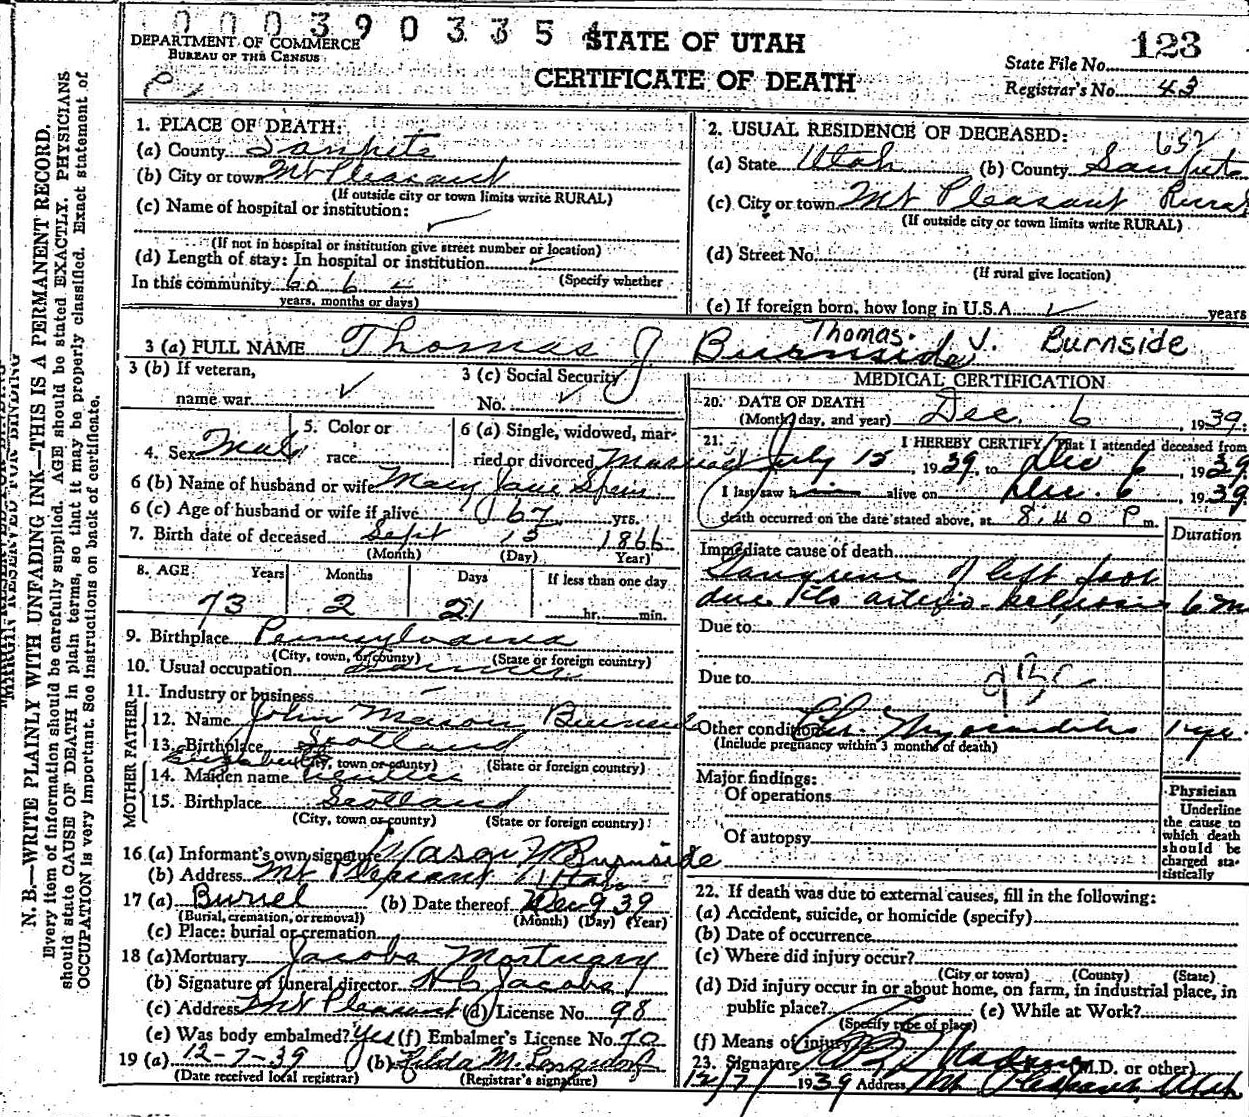 0003903354
DEPARTMENT OF COMMERCE
BUREAU OF THE CENSUS
STATE OF UTAH
CERTIFICATE OF DEATH
123
State File No.
Registrar's No. 43
N. B.—WRITE PLAINLY WITH UNFADING INK—THIS IS A PERMANENT RECORD.
Every item of information should be carefully supplied. AGE should be stated EXACTLY. PHYSICIANS
should state CAUSE OF DEATH in plain terms, so that it may be properly classified. Exact statement of
OCCUPATION is very important. See instructions on back of certificate.
1. PLACE OF DEATH:
(a) County Sanpete
(b) City or town Mt Pleasant
(If outside city or town limits write RURAL)
(c) Name of hospital or institution:
(If not in hospital or institution give street number or location)
(d) Length of stay: In hospital or institution
In this community 60 6 - (Specify whether
years, months or days)
2. USUAL RESIDENCE OF DECEASED:
652
(a) State Utah (b) County Sanpete
(c) City or town Mt Pleasant Rural
(If outside city or town limits write RURAL)
(d) Street No.
(If rural give location)
(e) If foreign born, how long in U.S.A. years
3 (a) FULL NAME Thomas J Burnside
Thomas. J. Burnside
3 (b) If veteran,
name war
3 (c) Social Security
No.
4. Sex Male
5. Color or
race
6 (a) Single, widowed, mar-
ried or divorced Married
6 (b) Name of husband or wife Mary Jane
6 (c) Age of husband or wife if alive 67 yrs.
7. Birth date of deceased Sept 15 1866
(Month) (Day) Year)
8. AGE Years Months Days If less than one day
73 2 21 hr. min.
9. Birthplace Pennsylvania
(City, town, or county) (State or foreign country)
10. Usual occupation Farmer
11. Industry or business -
FATHER
12. Name John Mason Burnside
13. Birthplace Scotland
(City, town or county) (State or foreign country)
MOTHER
Elizabeth
14. Maiden name
15. Birthplace Scotland
(City, town or county) (State or foreign country)
16 (a) Informant's own signature Mason M Burnside
(b) Address Mt Pleasant Utah
17 (a) Buriel (b) Date thereof Dec 9 39
(Burial, cremation, or removal) (Month) (Day) (Year)
(c) Place: burial or cremation
18 (a) Mortuary Jacobs Mortuary
(b) Signature of funeral director N C Jacobs
(c) Address Mt Pleasant (d) License No. 98
(e) Was body embalmed? Yes (f) Embalmer's License No. 70
19 (a) 12-7-39 (b) Hilda M.
(Date received local registrar) (Registrar's signature)
MEDICAL CERTIFICATION
20. DATE OF DEATH Dec. 6, 1939.
(Month, day, and year)
21. I HEREBY CERTIFY, That I attended deceased from
July 15, 1939, to Dec 6, 1939
I last saw him alive on Dec. 6, 1939
death occurred on the date stated above, at 8:40 P m.
Duration
Immediate cause of death
Gangrene of left foot
due to arterio-sclerosis 6 m
Due to
Due to
Other conditions Chr. Myocarditis 1 yr.
(Include pregnancy within 3 months of death)
Major findings:
Of operations
Of autopsy
Physician
Underline
the cause to
which death
should be
charged sta-
tistically
22. If death was due to external causes, fill in the following:
(a) Accident, suicide, or homicide (specify)
(b) Date of occurrence
(c) Where did injury occur?
(City or town) (County) (State)
(d) Did injury occur in or about home, on farm, in industrial place, in
public place? (e) While at Work?
(Specify type of place)
(f) Means of injury
23. Signature (M.D. or other)
12/7/ 1939 Address Mt Pleasant, Utah